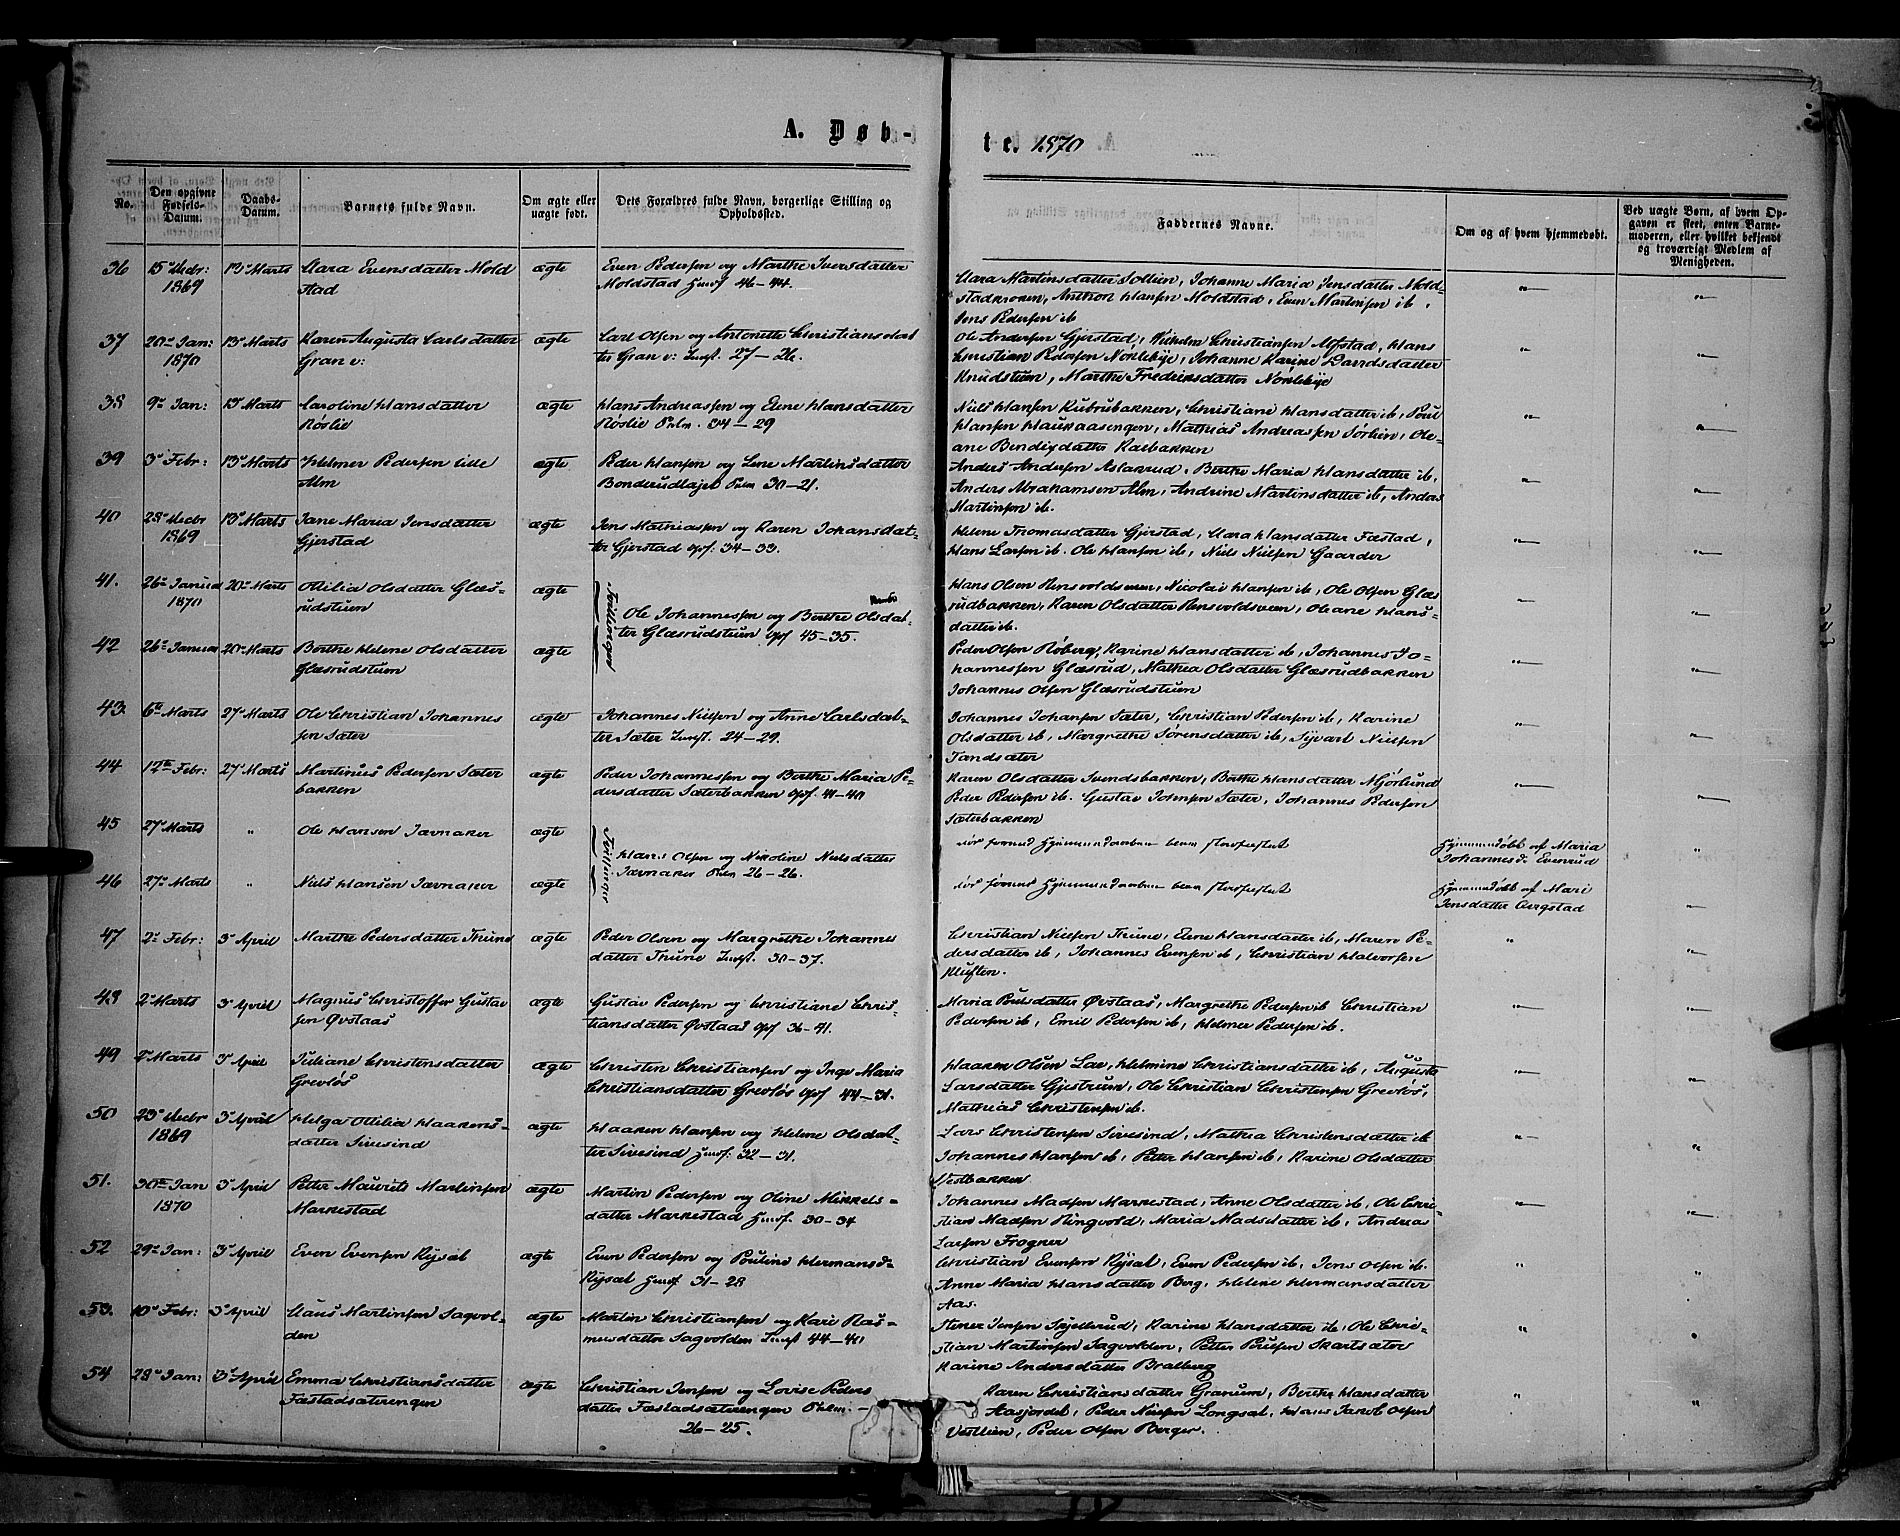 A. Døb-
te. 1870
No.
Den opgivne Fødsels-Datum.
Daabs-Datum.
Barnets fulde Navn.
Om ægte eller uægte født.
Dets Forældres fulde Navn, borgerlige Stilling og Opholdssted.
Faddernes Navne.
Om og af hvem hjemmedøbt.
Ved uægte Børn, af hvem Opgaven er skeet, enten Barnemoderen, eller hvilket bekjendt og troværdigt Medlem af Menigheden.
36 15de Decbr: 13de Marts Clara Evensdatter Mold ægte Even Pedersen og Marthe Iversdatter
1869 stad Moldstad Husf 46-44.
Clara Martinsdatter Sollien, Johanne Maria Jensdatter Mold-
stad, Anthon Hansen Moldstad, Even Martinsen ib,
Jens Pedersen ib
37 20de Jan: 13de Marts Karen Augusta Carlsdatter ægte Carl Olsen og Antonette Christiansdat
1870 Gran v: ter Gran v: Indst. 27-26.
Ole Andersen Gjerstad, Vilhelm Christiansen Mostad, Hans
Christian Pedersen Nøkleby, Johanne Karine Davidsdatter
Knudstuen, Marthe Fredriksdatter Nøkleby
38 9de Jan: 13de Marts Caroline Hansdatter ægte Hans Andreassen og Elene Hansdatter
Røslie Røslie Pslm. 34-29
Niels Hansen Kubrubakken, Christiane Hansdatter ib, Poul
Hansen Haukaasengen, Mathias Andreassen Sørlien, Ole-
ane Bendigdatter Kalbakken
39 3de Febr: 13de Marts Helmer Pedersen lille ægte Peder Hansen og Lene Martinsdatter
Alm Bonderudlajet Pslm 30-21.
Andreas Andersen Aslakrud, Berthe Maria Hansdatter ib,
Anders Abrahamsen Alm, Andrine Martinsdatter ib, Anders
Martinsen ib.
40 28de Decbr 13de Marts Jane Maria Jensdatter ægte Jens Mathiassen og Karen Johansdat-
1869 Gjerstad ter Gjerstad Opf. 34-33.
Helene Thomasdatter Gjerstad, Clara Hansdatter Fæstad,
Hans Larsen ib. Ole Hansen ib, Niels Nielsen Gaarder
41. 26de Januar 20de Marts Ottilia Olsdatter Glæs- ægte Tvillinger Ole Johannessen og Berthe Olsdat-
1870 rudstuen ter Glæsrudstuen Opf 45-35.
Hans Olsen Rensvoldsveen, Nicolai Hansen ib, Ole Olsen Glæs
rudbakken, Karen Olsdatter Rensvoldsveen, Oleane Hans-
datter ib.
42 26de Januar 20de Marts Berthe Helene Olsdatter ægte
Glæsrudstuen
Peder Olsen Røberg, Karine Hansdatter ib, Johannes Jo-
hannessen Glæsrud, Mathea Olsdatter Glæsrudbakken
Johannes Olsen Glæsrudstuen
43. 6te Marts 27de Marts Ole Christian Johannes ægte Johannes Nielsen og Anne Carlsdat-
sen Sæter ter Sæter Indst. 24-29.
Johannes Johansen Sæter, Christian Pedersen ib, Karine
Olsdatter ib, Margrethe Sørensdatter ib, Syvert Nielsen
Tandsæter
44 12te Febr: 27de Marts Martinus Pedersen Sæter ægte Peder Johannessen og Berthe Maria Pe-
bakken dersdatter Sæterbakken Opf. 41-40
Karen Olsdatter Svendsbakken, Berthe Hansdatter Mjørlund
Peder Pedersen ib. Gustav Johnsen Sæter, Johannes Pedersen
Sæterbakken
45 27de Marts " Ole Hansen Jævnaker ægte Tvillinger Hans Olsen og Nicoline Nielsdatter
Jævnaker Pslm 26-26.
Hjemmedøbt af Maria
Johannesd: Evenrud
46 27de Marts " Niels Hansen Jævnaker ægte
Hjemmedøbt af Mari
Jensdatter Bergstad
47 2de Febr: 3de April Marthe Pedersdatter Thune ægte Peder Olsen og Margrethe Johannes
datter Thune Indst. 30-37.
Christian Nielsen Thune, Elene Hansdatter ib, Maren Pe-
dersdatter ib, Johannes Evensen ib, Christian Halvorsen
Kluften.
48 2de Marts 3de April Magnus Christoffer Gustav ægte Gustav Pedersen og Christiane Chris-
sen Øvstaas tiansdatter Øvstaas Opf 36-41.
Maria Poulsdatter Øvstaas, Margrethe Pedersen ib Christian
Pedersen ib, Emil Pedersen ib, Helmer Pedersen ib.
49 2de Marts 3de April Juliane Christensdatter ægte Christen Christiansen og Inge Maria
Grevløs Christiansdatter Grevløs Opf 44-31.
Haaken Olsen Lae, Helmine Christiansdatter ib, Augusta
Larsdatter Gjestrum, Ole Christian Christensen Grevløs,
Mathias Christensen ib.
50 23de Decbr 3de April Helga Ottilia Haakens- ægte Haaken Hansen og Helene Olsdat-
1869 datter Sivesind ter Sivesind Husf. 32-31.
Lars Christensen Sivesind, Mathea Christensdatter ib
Johannes Hansen ib, Petter Hansen ib, Karine Olsdatter
Vestbakken
51. 30te Jan 3de April Petter Maurits Martinsen ægte Martin Pedersen og Oline Mikkels-
1870 Markestad datter Markestad Husf. 30-34
Johannes Madsen Markestad, Anne Olsdatter ib, Ole Chri-
stian Madsen Ringvold, Maria Madsdatter ib, Andreas
Larsen Frogner
52 29de Jan: 3de April Even Evensen Rysæt ægte Even Pedersen og Pouline Hermansd-
Rysæt Husf 31-28
Christian Evensen Rysæt, Even Pedersen ib, Jens Olsen ib.
Anne Maria Hansdatter Berg, Helene Hermansdatter
Aas.
53. 10de Febr: 3de April Claus Martinsen Sagvol- ægte Martin Christiansen og Kari Ras-
den musdatter Sagvolden Indst 44-40
Stener Jensen Skjellerud, Karine Hansdatter ib, Ole Chri-
stian Martinsen Sagvolden, Petter Poulsen Skartsæter
Karine Andersdatter Bratberg
54 28de Jan: 3de April Emma Christiansdatter ægte Christian Jensen og Lovise Peders
Fæstadsæterengen datter Fæstadsæterengen Pslm: -
26-25.
Karen Christiansdatter Granum, Berthe Hansdatter
Aasjordet, Peder Nielsen Longsæt, Hans Jakob Olsen
Vestlien, Peder Olsen Berger.